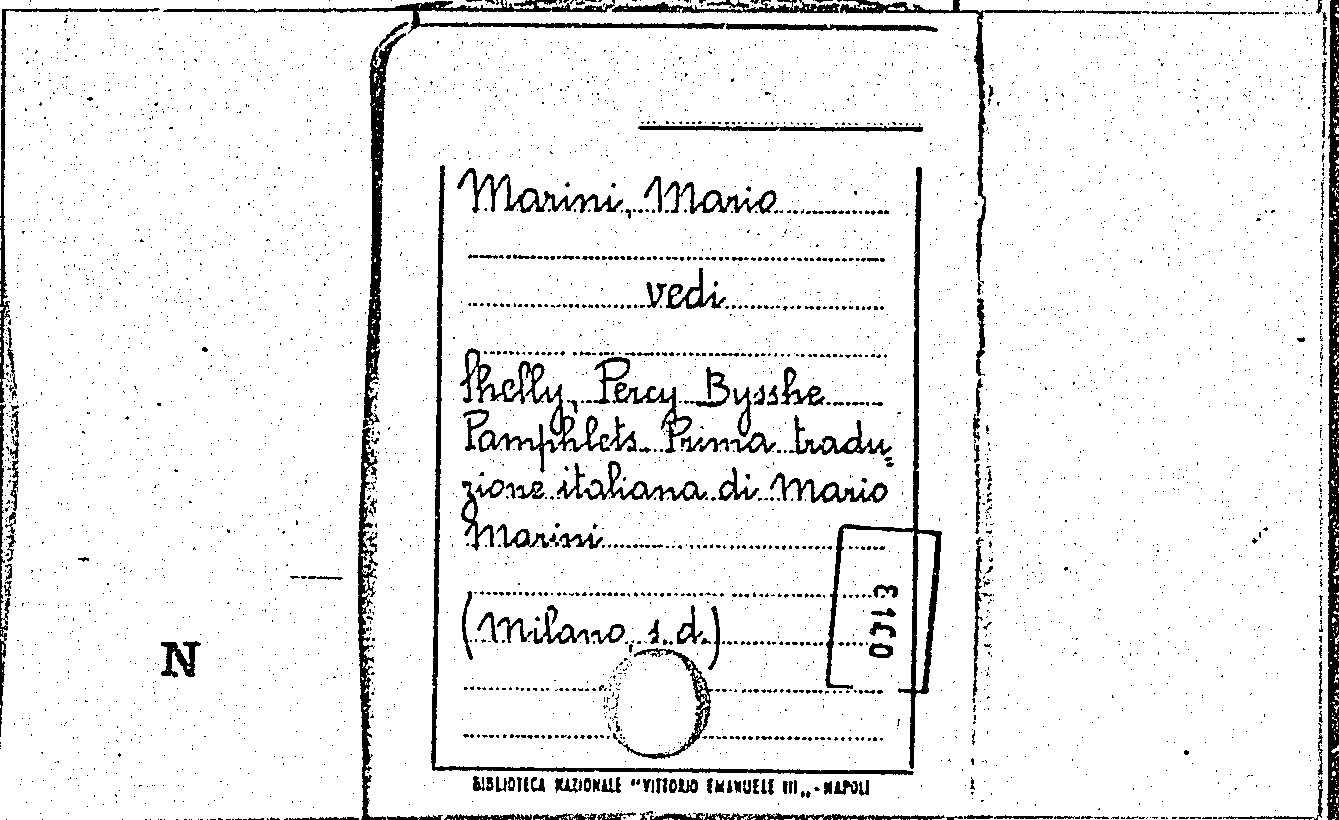 Marini, Mario
vedi
Shelly, Percy Bysshe
Pamphlets. Prima tradu„
zione italiana di Mario
Marini
(Milano, s.d.)
N
BIBLIOTECA NAZIONALE "VITTORIO EMANUELE III„ - NAPOLI